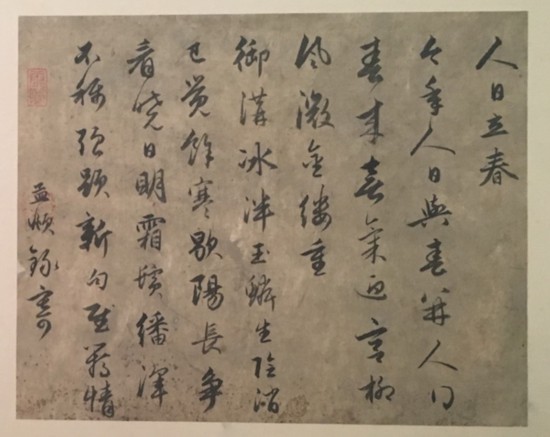 人日立春
今年人日與春并人得
春来喜氣迎宫柳
風微金縷重
御溝冰泮玉鱗生陰消
已覺餘寒歇陽長争
看曉日明霜鬢繙渾
不稱強題新句慰羈情
孟頫錄寄